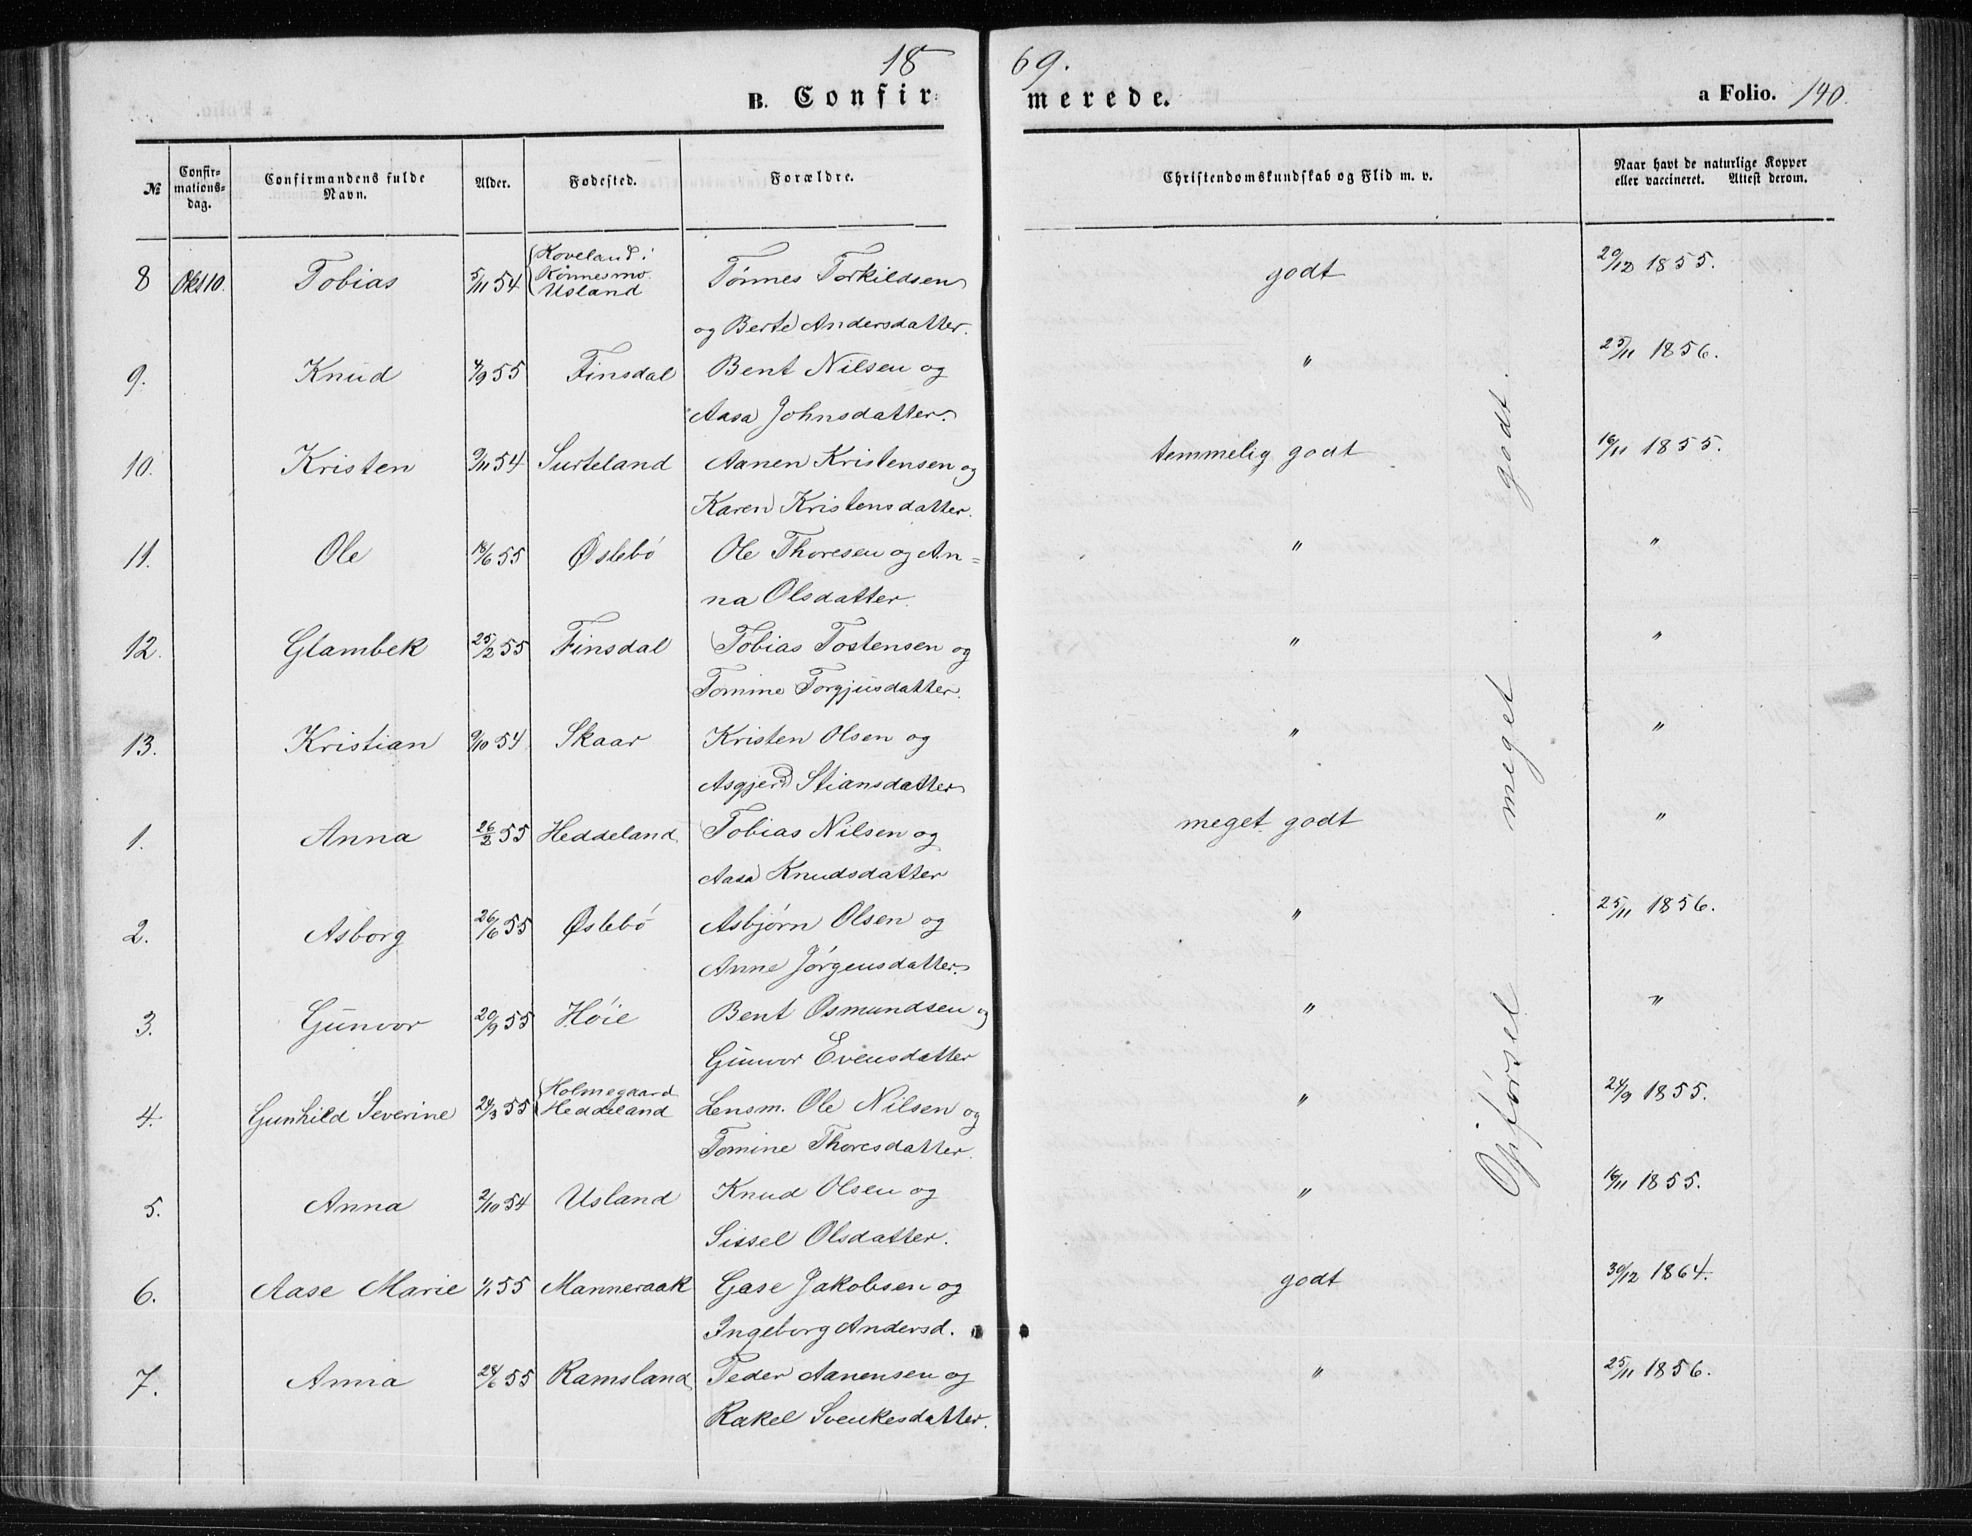 1869.
B. Confirmerede.
a Folio. 140.
№ Confirmationsdag. Confirmandens fulde Navn. Alder. Fødested. Forældre. Christendomskundskab og Flid m. v. Naar havt de naturlige Kopper eller vaccineret. Attest derom.
8 Okt 10. Tobias 5/11 54 Koveland i Könnesmo. Usland Tönnes Torkildsen godt 20/12 1855.
og Berte Andersdatter.
9. Knud 4/9 55 Finsdal Bent Nilsen og " 25/11 1856.
Aasa Johnsdatter.
10. Kristen 9/11 54 Surteland Aanen Kristensen og temmelig godt 16/11 1855.
Karen Kristensdatter.
11. Ole 18/6 55 Øslebö Ole Thoresen og An= " "
na Olsdatter.
12. Glambek 25/2 55 Finsdal Tobias Tostensen og " "
Tomine Torgjusdatter.
13. Kristian 9/10 54 Skaar Kristen Olsen og " "
Asgjerd Stiansdatter
1. Anna 26/2 55 Heddeland Tobias Nilsen og meget godt "
Aasa Knudsdatter
2. Asborg 26/6 55 Øslebö Asbjörn Olsen og " 25/11 1856.
Anne Jörgensdatter.
3. Gunvor 20/9 55 Höie Bent Osmundsen og " "
Gunvor Evensdatter
4. Gunhild Severine 24/3 55 Holmegaard Heddeland Lensm. Ole Nilsen og " 24/9 1855.
Tomine Thoresdatter.
5. Anna 2/10 54 Usland Knud Olsen og " 16/11 1855.
Sissel Olsdatter.
6. Aase Marie 1/1 55 Manneraak Gase Jakobsen og godt 30/12 1864.
Ingeborg Andersd.
7. Anna 28/6 55 Ramsland Teder Aanensen og " 25/11 1856.
Rakel Svenkesdatter.
Opförsel meget godt.